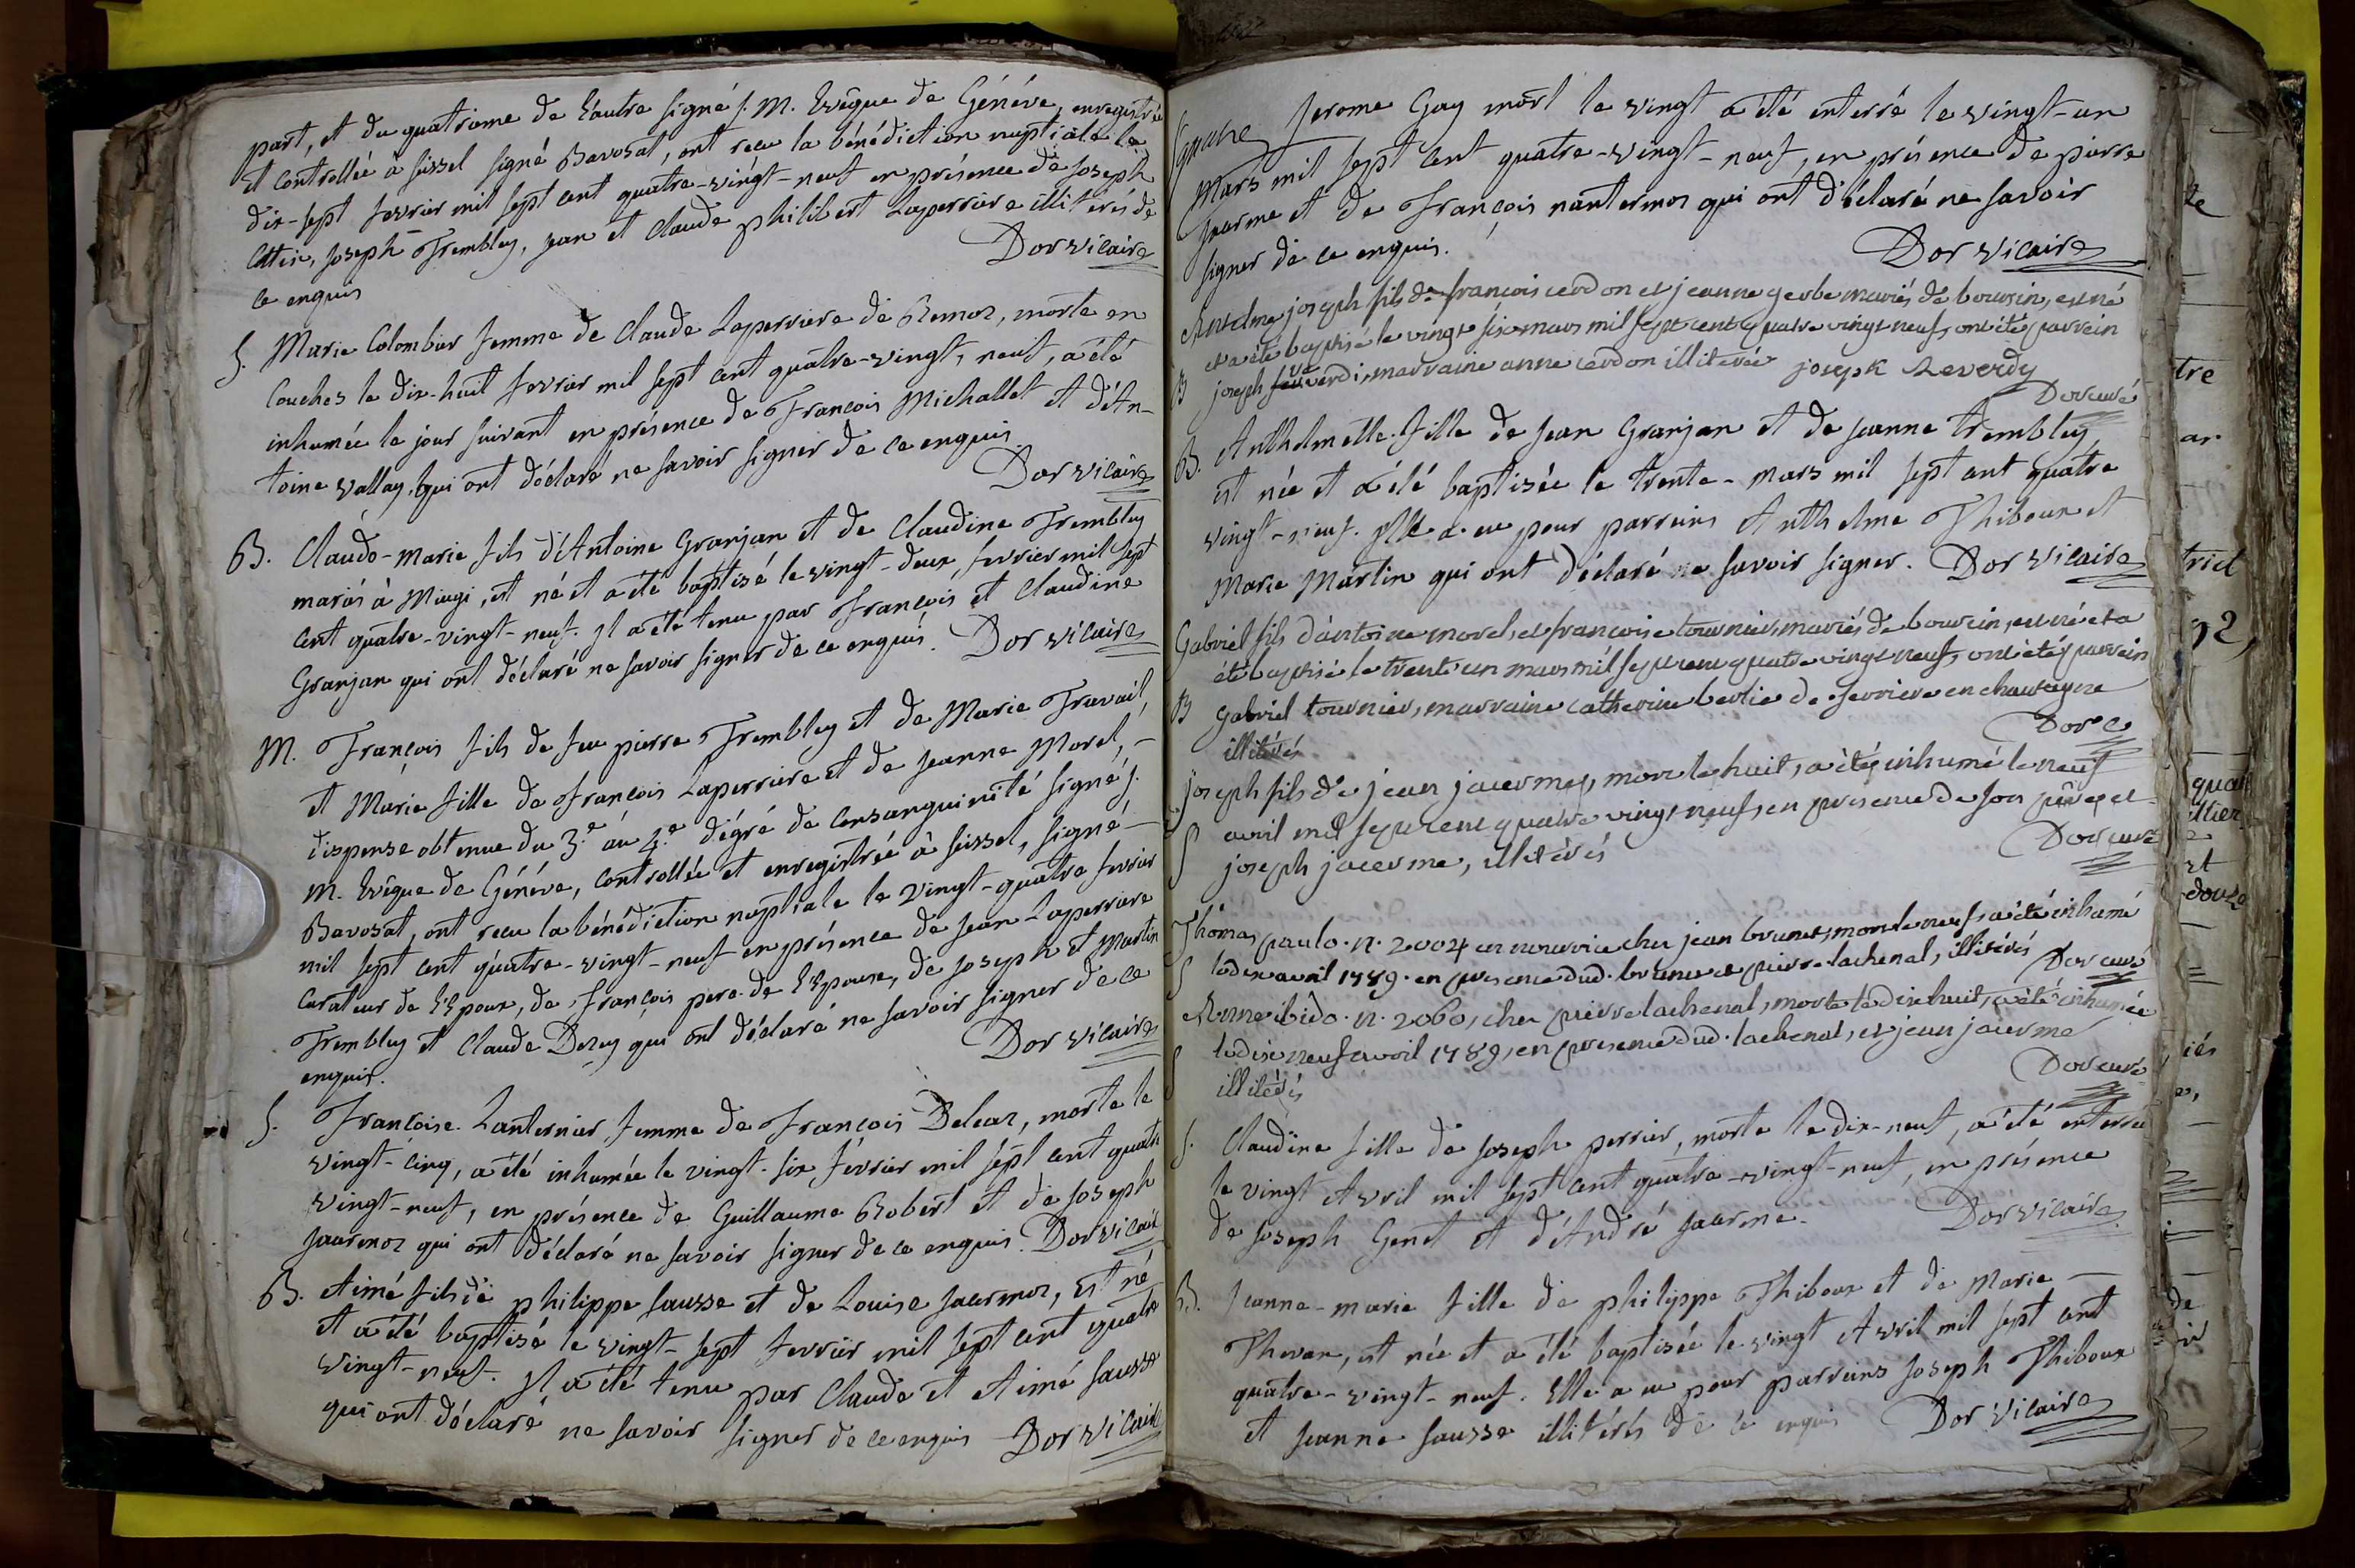 part, et du quatrieme de l'autre signé J. M. Evêque de Généve, enregistrée
et contrôllée à seissel signé Bavosat, ont recu la bénédiction nuptiale le
dix-sept fevrier mil sept cent quatre-vingt-neuf en présence de joseph
Cottin, joseph Trembley, jean et Claude philibert Laperriere illiterés de
ce enquis
Dor vicaire
S. Marie Colombar femme de Claude Laperriere de Remoz, morte en
Couches le dix-huit fevrier mil sept cent quatre-vingt, neuf, a été
inhumée le jour suivant en présence de François Michallet et d'An-
toine Vallay, qui ont déclaré ne savoir signer de ce enquis
Dor vicaire
B. Claude-marie fils d'Antoine Granjan et de Claudine Trembley
mariés à Mieugi, est né et a été baptisé le vingt-deux, fevrier mil sept
cent quatre-vingt-neuf. Il a été tenu par françois et Claudine
Granjan qui ont déclaré ne savoir signer de ce enquis. Dor vicaire
M. François fils de feu pierre Trembley et de Marie Travail,
et Marie fille de françois Laperriere et de jeanne Morel, -
dispense obtenue du 3.e au 4.e dégré de Consanguinité signé J.
M. Evêque de Généve, Contrôllée et enregistrée à seissel, signé -
Bavosat, ont recu la bénédiction nuptiale le vingt-quatre fevrier
mil sept cent quatre-vingt-neuf en présence de jean Laperriere
Curateur de l'Epoux, de françois pere de l'Epouse, de joseph et Martin
Trembley et Claude Dozey qui ont déclaré ne savoir signer de ce
enquis.
Dor vicaire
S. Françoise Lanternier femme de François Belcaz, morte le
vingt-cinq, a été inhumée le vingt-six fevrier mil sept cent quatre
vingt-neuf, en présence de Guillaume Robert et de joseph
jacrmoz qui ont déclaré ne savoir signer de ce enquis. Dor vicaire
B. Aimé fils de philippe sausse et de Louise jacrmoz, est né
et a été baptisé le vingt-sept fevrier mil sept cent quatre
vingt-neuf. Il a été tenu par Claude et Aimé sausse
qui ont déclaré ne savoir signer de ce enquis Dor vicaire
jerome Gay mort le vingt a été enterré le vingt-un
Mars mil sept cent quatre-vingt-neuf, en présence de pierre
jacrme et de François nantermoz qui ont déclaré ne savoir
signer de ce enquis.
Dor vicaire
Anselme joseph fils de françois cerdon et jeanne gerbe mariés de boursin, est né
et a été baptisé le vingt six mars mil sept cent quatre vingt neuf, ont été parrein
B joseph reverdi, marraine anne cerdon illiterée joseph Reverdy
Dor curé
B. Anthelmette fille de jean Granjan et de jeanne Trembley,
est née et a été baptisée le trente-mars mil sept cent quatre
vingt-neuf. Elle a eu pour parreins Anthelme Thiboux et
Marie Martin qui ont déclaré ne savoir signer. Dor vicaire
Gabriel fils d'antoine morel, et françoise tournier, mariés de boursin, est né et a
été baptisé le trente un mars mil sept cent quatre vingt neuf, ont été parrein
B gabriel tournier, marraine catherine berlie de serriere en chautagne
illiterés
Dor c
joseph fils de jean jacerme, mort le huit, a été inhumé le neuf
avril mil sept cent quatre vingt neuf, en presence de son pere, et
S joseph jacerme, illiterés
Dor curé
Thomas paulo. n. 2004 en nourrice chez jean brunet, mort le neuf, a été inhumé
S le dix avril 1789. en presence dud. brunet et pierre lachenal, illiterés Dor curé
Anne ibido. n. 2060, chez pierre lachenal, morte le dix huit, a été inhumée
le dix neuf avril 1789, en presence dud. lachenal, et jean jacerme
S illiterés
Dor curé
S. Claudine fille de joseph perrier, morte le dix-neuf, a été enterrée
le vingt Avril mil sept cent quatre-vingt-neuf, en présence
de joseph Genet et d'André jacrme.
Dor vicaire
B. jeanne-marie fille de philippe Thiboux et de Marie -
Thevan, est née et a été baptisée le vingt Avril mil sept cent
quatre-vingt-neuf. Elle a eu pour parreins joseph Thiboux
et jeanne sausse illiterés de ce enquis Dor vicaire